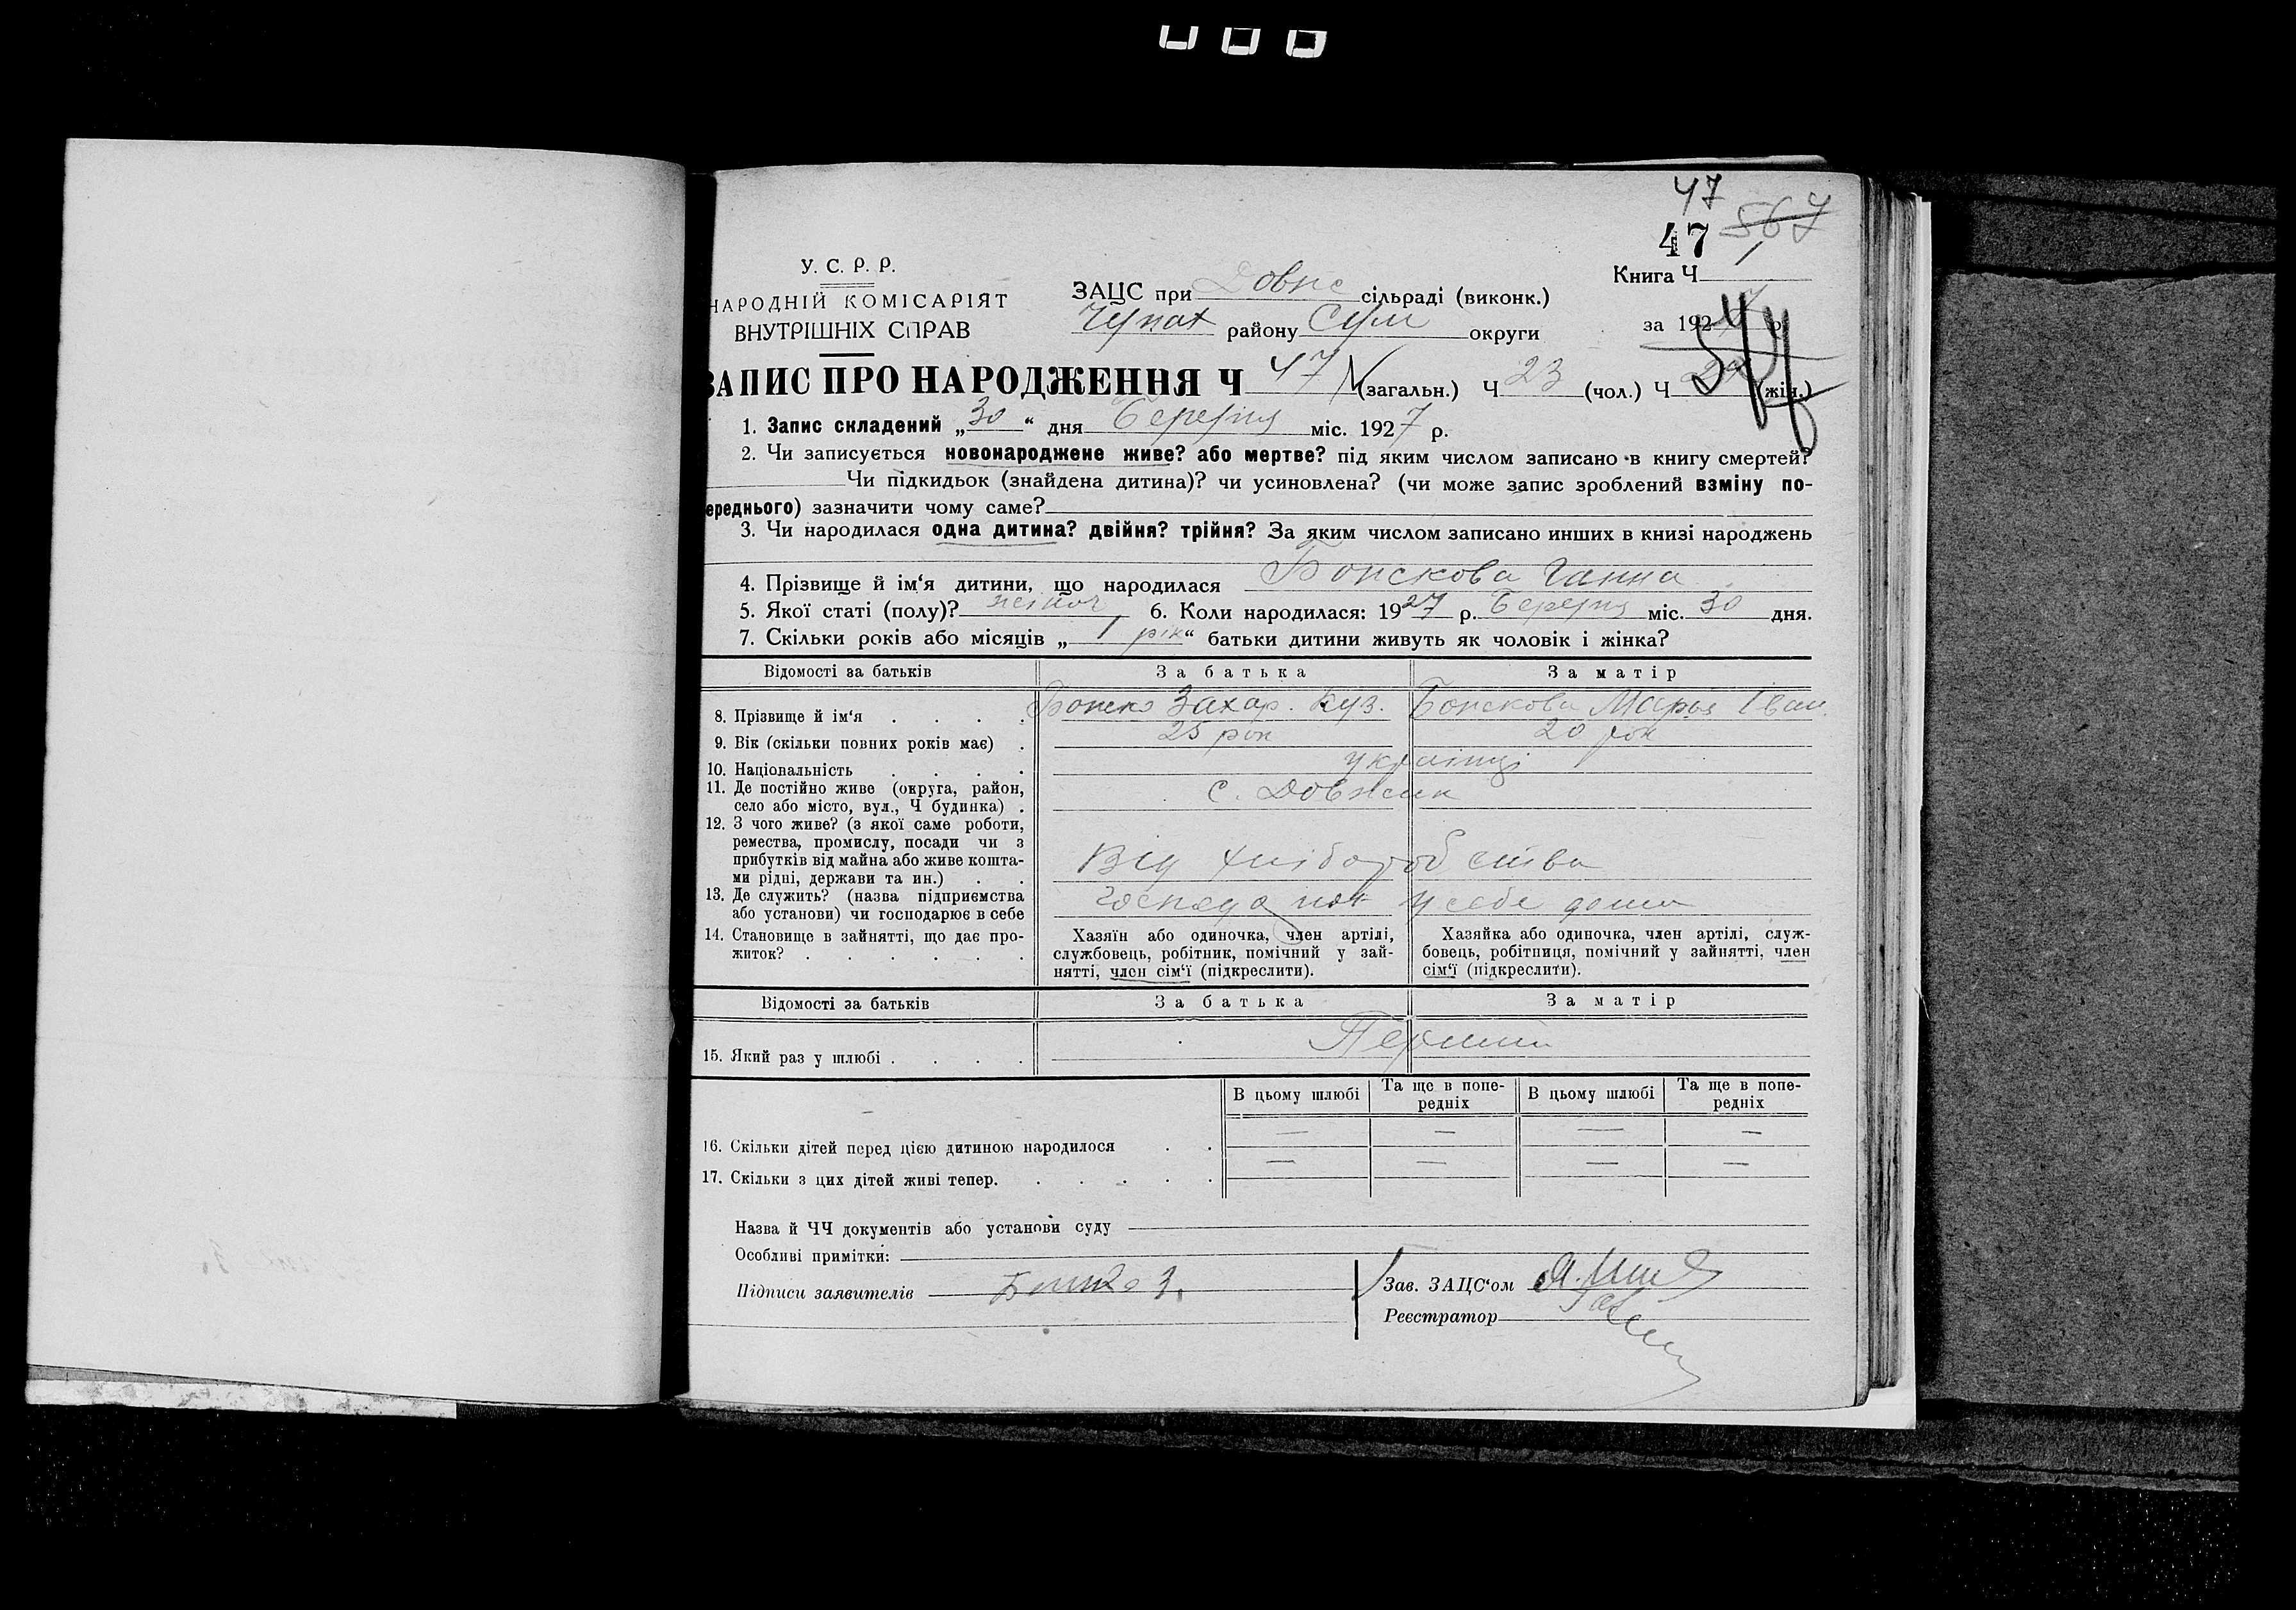 47
47 567
У. С. Р. Р.
НАРОДНІЙ КОМІСАРІЯТ
ВНУТРІШНІХ СПРАВ
Книга Ч 1
ЗАЦС при Довж сільраді (виконк.)
Чупах району Сум округи
за 1927 р.
ЗАПИС ПРО НАРОДЖЕННЯ Ч 47 (загальн.) Ч 23 (чол.) Ч (жін.)
1. Запис складений „30“ дня Березня міс. 1927 р.
2. Чи записується новонароджене живе? або мертве? під яким числом записано в книгу смертей?
Чи підкидьок (знайдена дитина)? чи усиновлена? (чи може запис зроблений взміну по-
ереднього) зазначити чому саме?
3. Чи народилася одна дитина? двійня? трійня? За яким числом записано инших в книзі народжень
4. Прізвище й ім‘я дитини, що народилася Ганна
5. Якої статі (полу)? жіноч 6. Коли народилася: 1927 р. Березня міс. 30 дня.
7. Скільки років або місяців „1 рік“ батьки дитини живуть як чоловік і жінка?
Відомості за батьків За батька За матір
8. Прізвище й ім‘я . . . . Захар. Куз. Марья Іван.
9. Вік (скільки повних років має) . 25 рок 20 рок
10. Національність . . . . українці
11. Де постійно живе (округа, район,
село або місто, вул., Ч будинка) . с. Довжик
12. З чого живе? (з якої саме роботи,
ремества, промислу, посади чи з
прибутків від майна або живе кошта-
ми рідні, держави та ин.) . . Від хліборобства
13. Де служить? (назва підприємства
або установи) чи господарює в себе у себе дома
14. Становище в зайнятті, що дає про-
житок? . . . . . .
Хазяїн або одиночка, член артілі,
службовець, робітник, помічний у зай-
нятті, член сім‘ї (підкреслити).
Хазяйка або одиночка, член артілі, служ-
бовець, робітниця, помічний у зайнятті, член
сім‘ї (підкреслити).
Відомості за батьків За батька За матір
15. Який раз у шлюбі . . . . Перший
В цьому шлюбі Та ще в попе-
редніх В цьому шлюбі Та ще в попе-
редніх
16. Скільки дітей перед цією дитиною народилося . . — — — —
17. Скільки з цих дітей живі тепер. . . . . . — — — —
Назва й ЧЧ документів або установи суду
Особливі примітки:
Підписи заявителів З.
Зав. ЗАЦС‘ом
Реєстратор